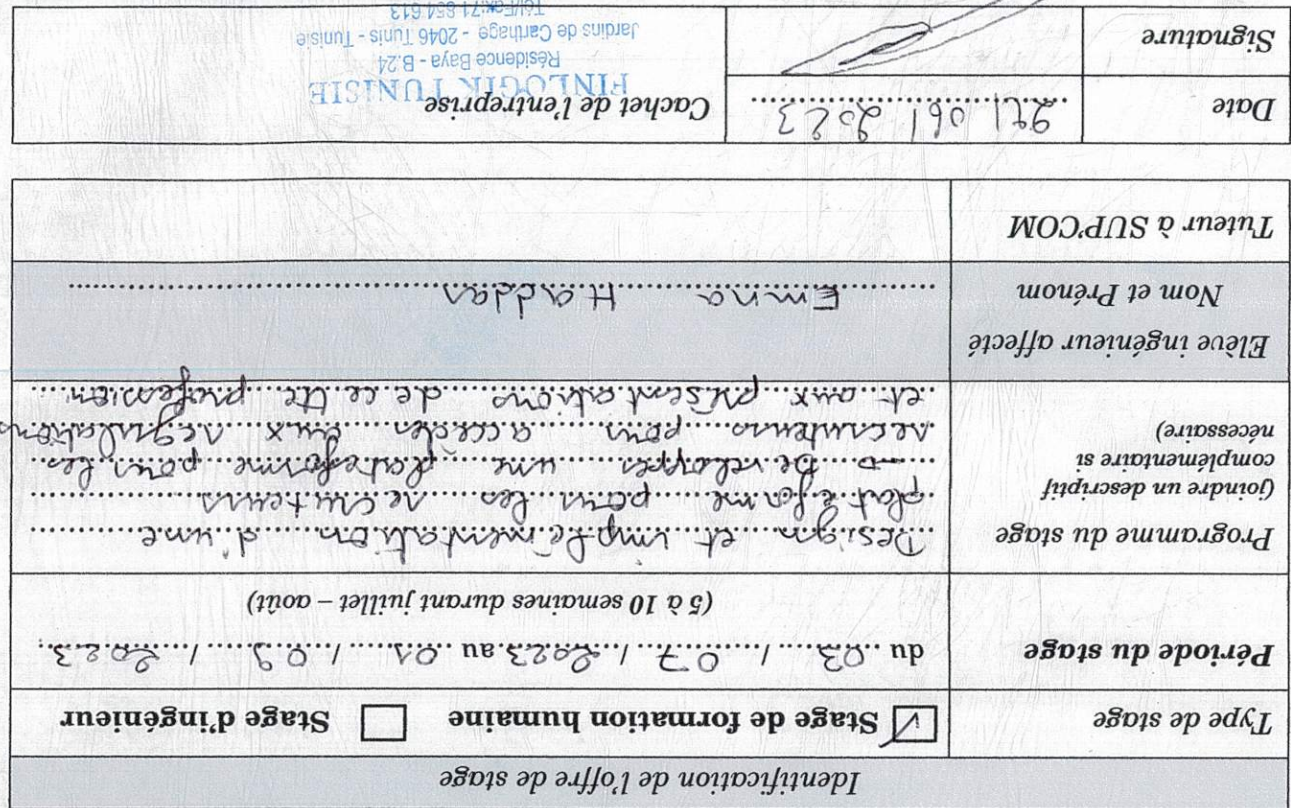 Identification de l'offre de stage
Type de stage
Stage de formation humaine
Stage d'ingénieur
Période du stage
du 03 / 07 / 2023 au 01 / 09 / 2023
(5 à 10 semaines durant juillet – août)
Programme du stage
(joindre un descriptif
complémentaire si
nécessaire)
Design et implémentation d'une
plateforme pour les recruteurs
→ Developper une plateforme pour les
recruteurs pour acceder aux regulations
et aux présentations de cette profession
Elève ingénieur affecté
Nom et Prénom
Emna Haddar
Tuteur à SUP'COM
Date
/ 06 / 2023
Cachet de l'entreprise
FINLOGIK TUNISIE
Résidence Baya - B.24
Jardins de Carthage - 2046 Tunis - Tunisie
Tél/Fax: 71 854 613
Signature